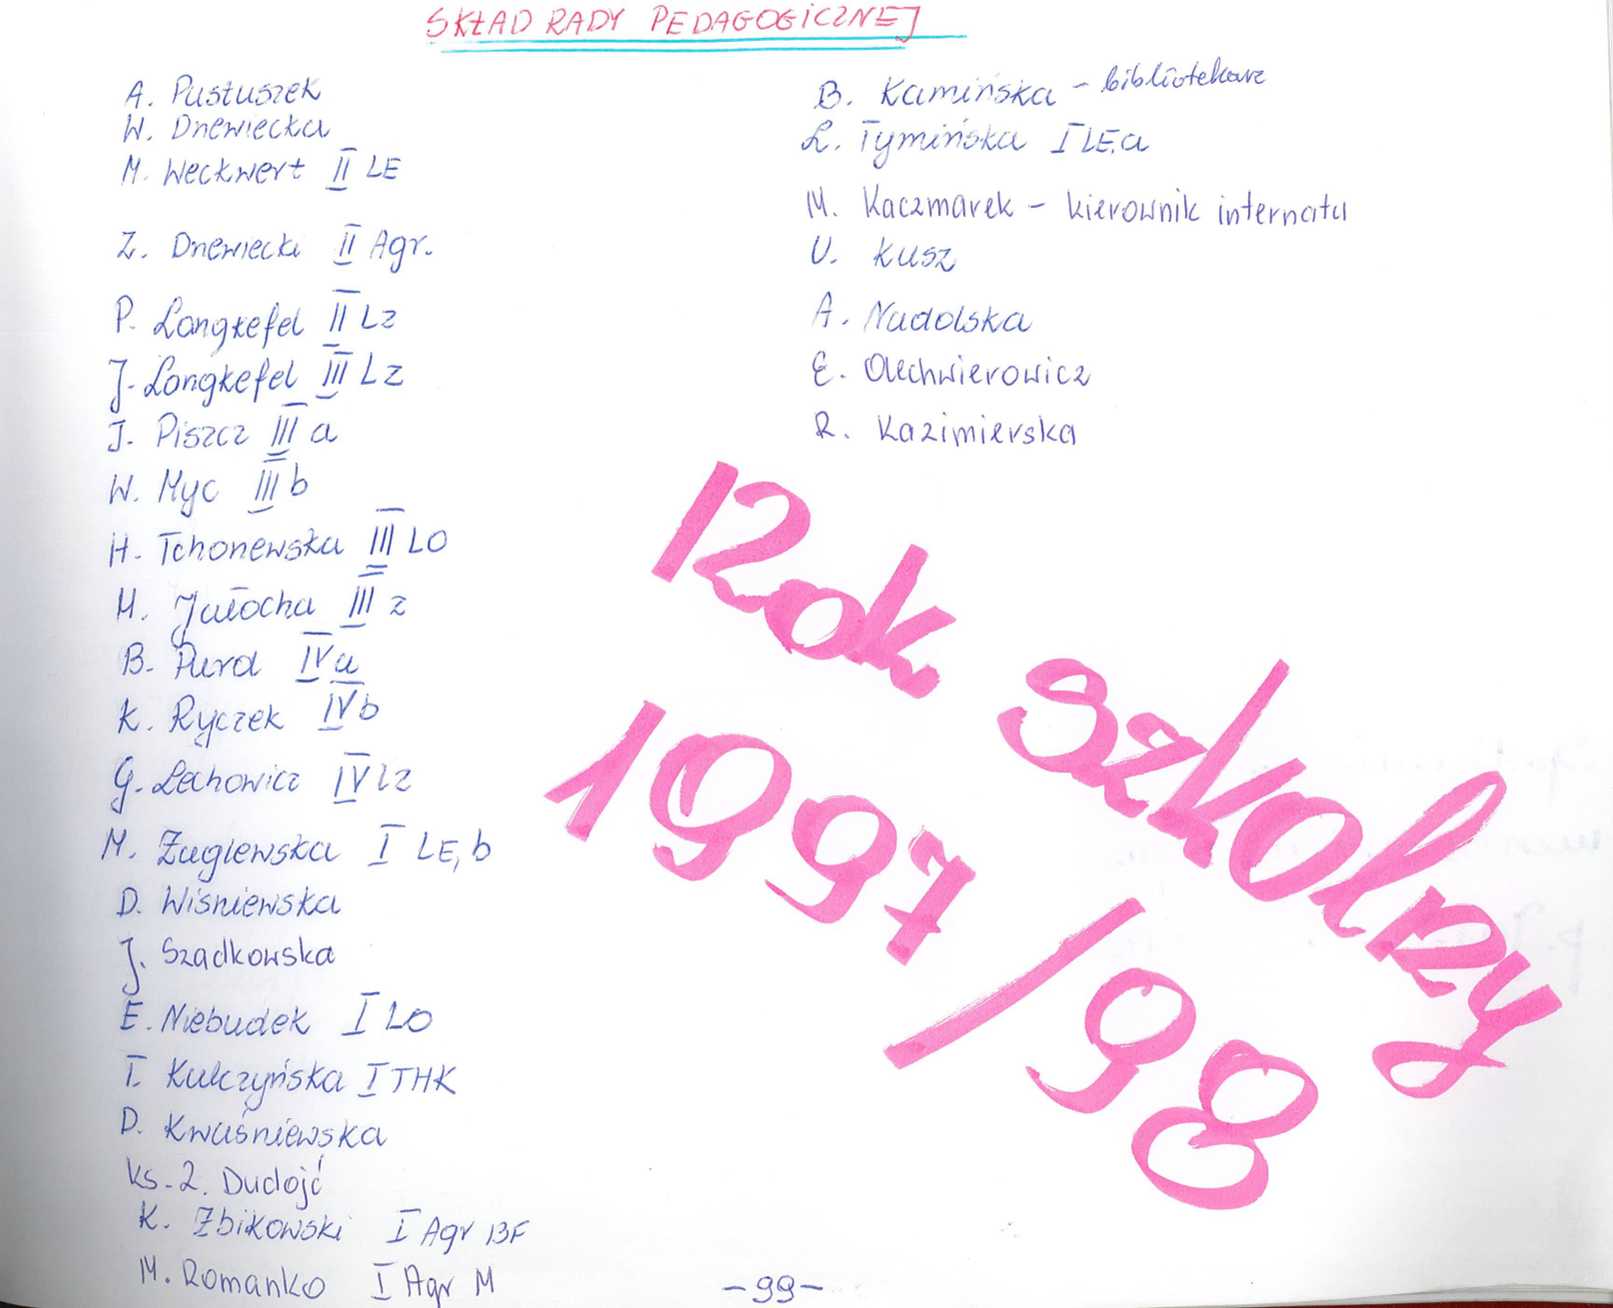 SKŁAD RADY PEDAGOGICZNEJ
A. Pustuszek
W. Drzewiecka
M. Weckwert II LE
Z. Drzewiecki II Agr.
P. Langkefel II Lz
J. Langkefel III Lz
J. Piszcz III a
W. Myc III b
H. Tchorzewska III LO
M. Jałocha III z
B. Purol IV a
K. Ryczek IV b
G. Lechowicz IV Lz
M. Żugiewska I LE, b
D. Wiśniewska
J. Szadkowska
E. Niebudek I LO
T. Kulczyńska I THK
D. Kwaśniewska
ks. Z. Dudojć
K. Żbikowski I Agr BF
M. Romanko I Agr M
B. Kamińska - bibliotekarz
L. Tymińska I LE,a
M. Kaczmarek - kierownik internatu
U. Kusz
A. Nadolska
E. Olechwierowicz
R. Kazimierska
Rok szkolny
1997/98
-99-